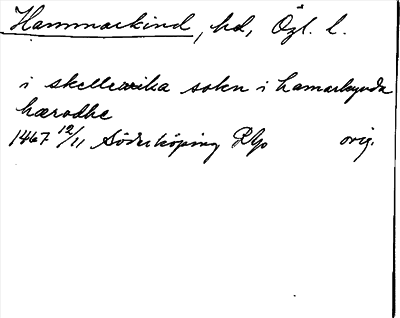 Hammarkind, hd, Ögl. l.
i skellewika sokn i hamarkynda
hæradhe
1467 12/11 Söderköping Dep orig.